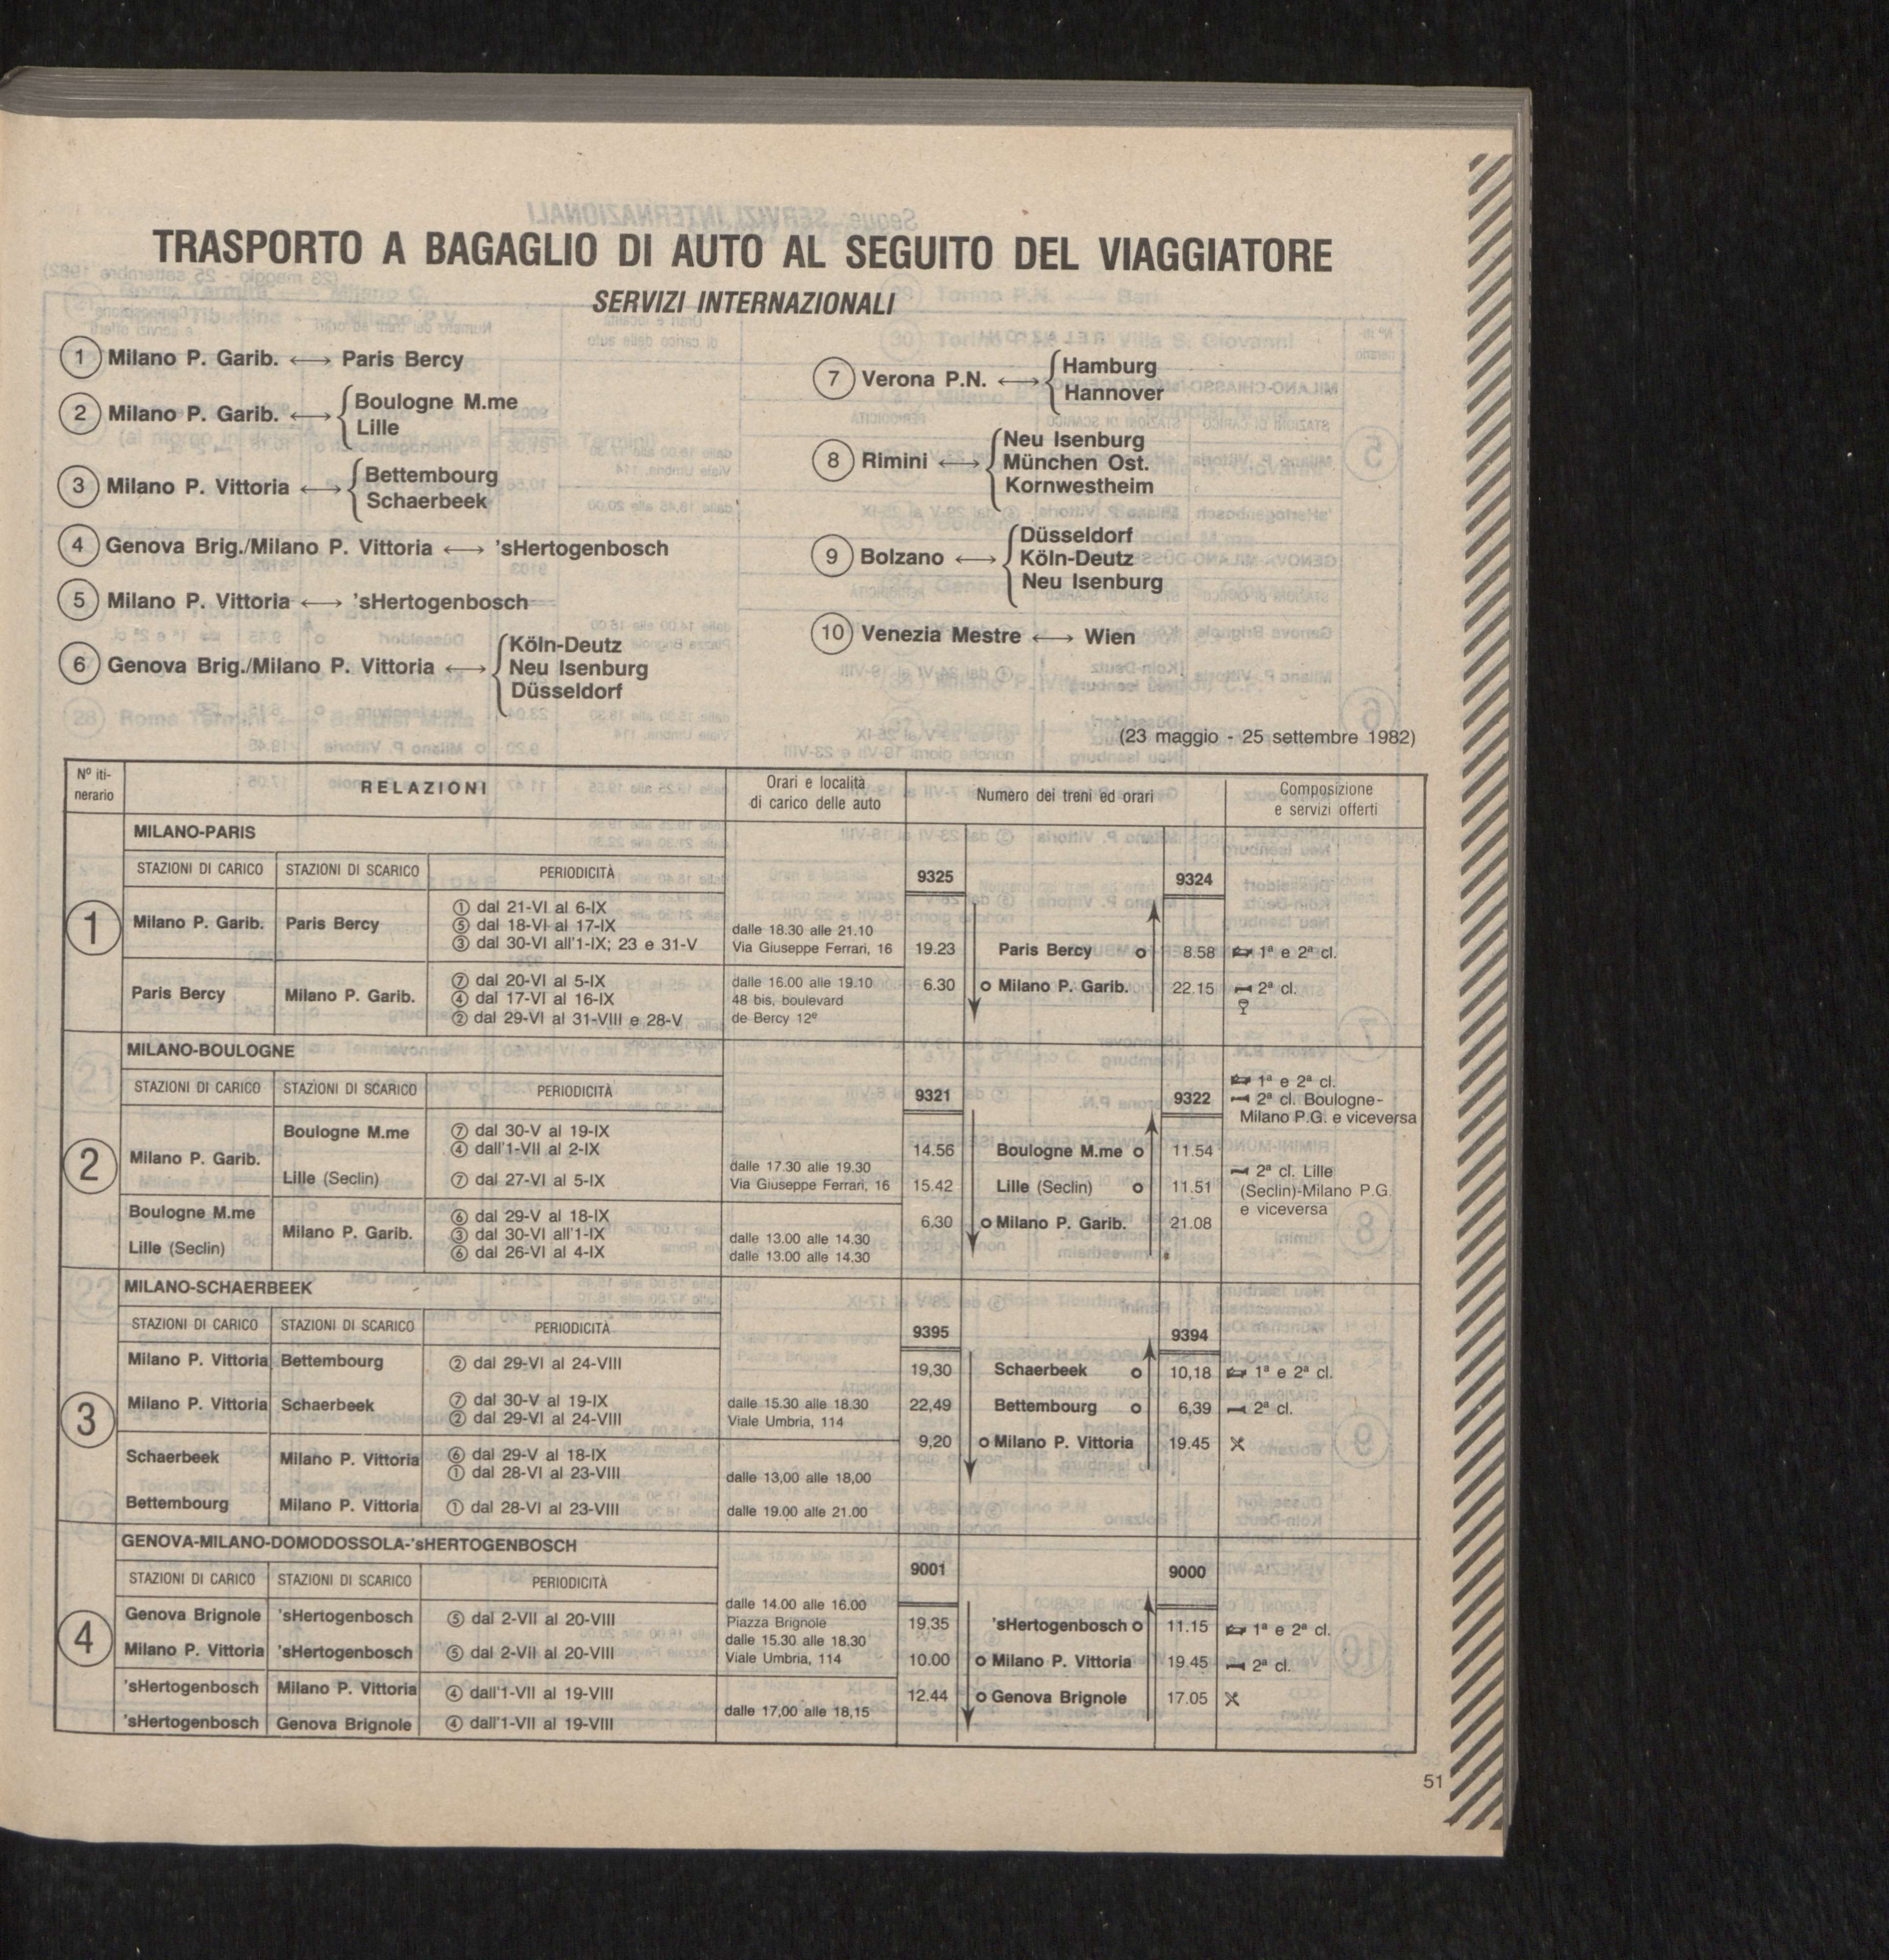 TRASPORTO A BAGAGLIO DI AUTO AL SEGUITO DEL VIAGGIATORE
SERVIZI INTERNAZIONALI
1 Milano P. Garib. ⟷ Paris Bercy
2 Milano P. Garib. ⟷ Boulogne M.me
Lille
3 Milano P. Vittoria ⟷ Bettembourg
Schaerbeek
4 Genova Brig./Milano P. Vittoria ⟷ 'sHertogenbosch
5 Milano P. Vittoria ⟷ 'sHertogenbosch
6 Genova Brig./Milano P. Vittoria ⟷ Köln-Deutz
Neu Isenburg
Düsseldorf
7 Verona P.N. ⟷ Hamburg
Hannover
8 Rimini ⟷ Neu Isenburg
München Ost.
Kornwestheim
9 Bolzano ⟷ Düsseldorf
Köln-Deutz
Neu Isenburg
10 Venezia Mestre ⟷ Wien
(23 maggio - 25 settembre 1982)
Nº iti-
nerario
RELAZIONI
Orari e località
di carico delle auto
Numero dei treni ed orari
Composizione
e servizi offerti
1
MILANO-PARIS
STAZIONI DI CARICO STAZIONI DI SCARICO PERIODICITÀ
Milano P. Garib. Paris Bercy
① dal 21-VI al 6-IX
⑤ dal 18-VI al 17-IX
③ dal 30-VI all'1-IX; 23 e 31-V
dalle 18.30 alle 21.10
Via Giuseppe Ferrari, 16
Paris Bercy Milano P. Garib.
⑦ dal 20-VI al 5-IX
④ dal 17-VI al 16-IX
② dal 29-VI al 31-VIII e 28-V
dalle 16.00 alle 19.10
48 bis, boulevard
de Bercy 12e
9325 9324
19.23 Paris Bercy o 8.58 1ª e 2ª cl.
6.30 o Milano P. Garib. 22.15 2ª cl.
2
MILANO-BOULOGNE
STAZIONI DI CARICO STAZIONI DI SCARICO PERIODICITÀ
Milano P. Garib.
Boulogne M.me
⑦ dal 30-V al 19-IX
④ dall'1-VII al 2-IX
Lille (Seclin) ⑦ dal 27-VI al 5-IX
dalle 17.30 alle 19.30
Via Giuseppe Ferrari, 16
Boulogne M.me
Lille (Seclin)
Milano P. Garib.
⑥ dal 29-V al 18-IX
③ dal 30-VI all'1-IX
⑥ dal 26-VI al 4-IX
dalle 13.00 alle 14.30
dalle 13.00 alle 14.30
9321 9322
14.56 Boulogne M.me o 11.54
15.42 Lille (Seclin) o 11.51
6.30 o Milano P. Garib. 21.08
1ª e 2ª cl.
2ª cl. Boulogne-
Milano P.G. e viceversa
2ª cl. Lille
(Seclin)-Milano P.G.
e viceversa
3
MILANO-SCHAERBEEK
STAZIONI DI CARICO STAZIONI DI SCARICO PERIODICITÀ
Milano P. Vittoria Bettembourg ② dal 29-VI al 24-VIII
Milano P. Vittoria Schaerbeek
⑦ dal 30-V al 19-IX
② dal 29-VI al 24-VIII
dalle 15.30 alle 18.30
Viale Umbria, 114
Schaerbeek Milano P. Vittoria
⑥ dal 29-V al 18-IX
① dal 28-VI al 23-VIII
dalle 13,00 alle 18,00
Bettembourg Milano P. Vittoria ① dal 28-VI al 23-VIII dalle 19.00 alle 21.00
9395 9394
19,30 Schaerbeek o 10,18 1ª e 2ª cl.
22,49 Bettembourg o 6,39 2ª cl.
9,20 o Milano P. Vittoria 19.45
4
GENOVA-MILANO-DOMODOSSOLA-'sHERTOGENBOSCH
STAZIONI DI CARICO STAZIONI DI SCARICO PERIODICITÀ
Genova Brignole 'sHertogenbosch ⑤ dal 2-VII al 20-VIII
dalle 14.00 alle 16.00
Piazza Brignole
Milano P. Vittoria 'sHertogenbosch ⑤ dal 2-VII al 20-VIII
dalle 15.30 alle 18.30
Viale Umbria, 114
'sHertogenbosch Milano P. Vittoria ④ dall'1-VII al 19-VIII
'sHertogenbosch Genova Brignole ④ dall'1-VII al 19-VIII
dalle 17,00 alle 18,15
9001 9000
19.35 'sHertogenbosch o 11.15 1ª e 2ª cl.
10.00 o Milano P. Vittoria 19.45 2ª cl.
12.44 o Genova Brignole 17.05
51